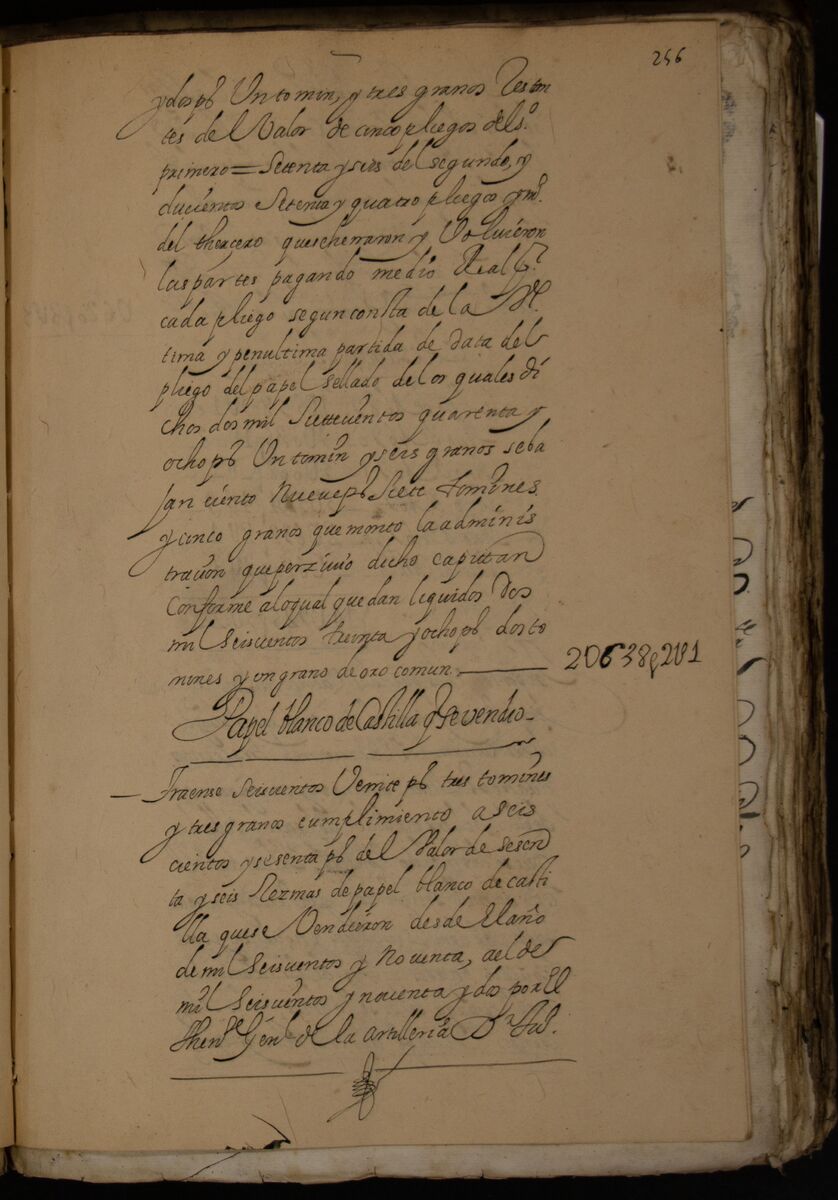 256
y dos ps Un tomin, y tres granos Restan
tes del Valor de cinco pliegos del so.
primero = Setenta y seis del segundo, y
ducientos Setenta y quatro pliegos y mo.
del thercero que se herraron y Volvieron
las partes pagando medio Real Pr.
cada pliego segun consta de la Vl
tima y penultima partida de data del
pliego del papel sellado de los quales di
chos dos mil Settecientos quarenta y
ocho ps Un tomin y seis granos se ba
jan ciento Nueve ps Siete tomines
y cinco granos que monto la adminis
tracion que perzivio dicho capitan
Conforme a lo qual quedan liquidos Dos
mil Seiscientos treinta y ocho ps dos to
mines y un grano de oro comun. 2U638p2U1
Papel blanco de Castilla q se vendio
Traense Seiscientos Veinte ps tres tomines
y tres granos cumplimiento a seis
cientos y sesenta ps del Valor de sesen
ta y seis Rezmas de papel blanco de casti
lla que se Vendieron desde El año
de mil Seiscientos y Noventa, a el de
mil Seiscientos y noventa y dos por El
Thene. Genl. de la artilleria Dn